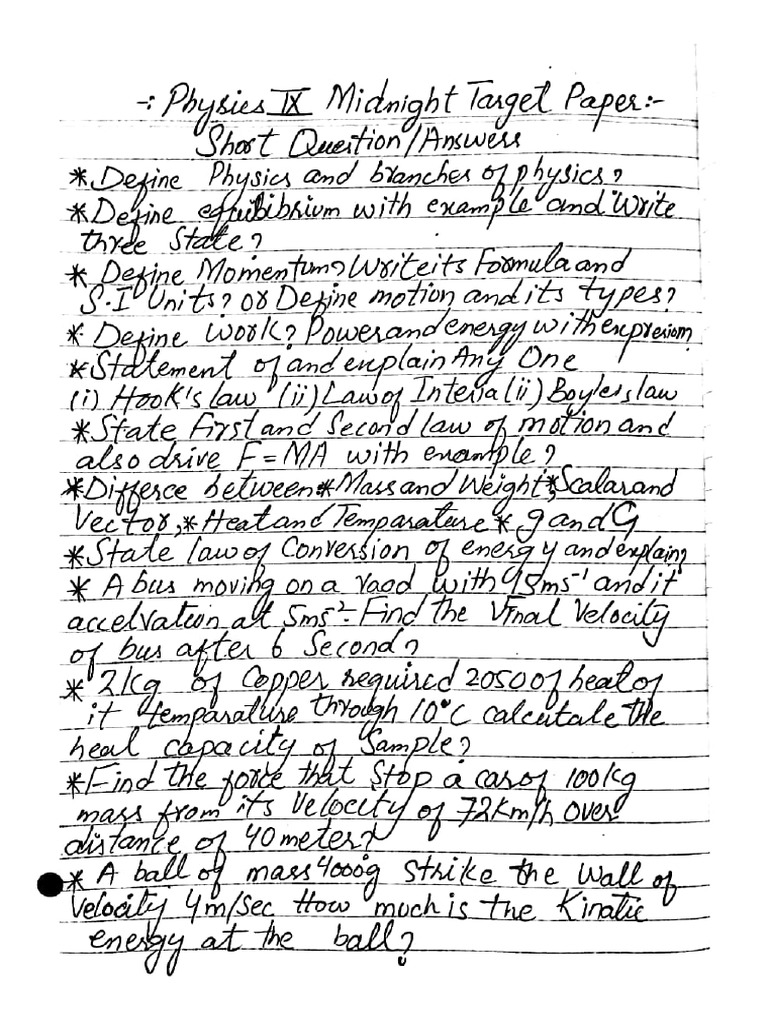 -: Physics IX Midnight Target Paper:-
Short Question/Answers
* Define Physics and branches of physics?
* Define equilibrium with example and Write
three State?
* Define Momentum? Write its Formula and
S.I Units? or Define motion and its types?
* Define Work? Power and energy with expresion?
* Statement of and explain Any One
(i) Hook's law (ii) Law of Interia (ii) Boyle's law
* State First and Second law of motion and
also drive F = MA with example?
* Differce between * Mass and Weight, * Scalar and
Vector, * Heat and Temparature * g and G
* State law of Conversion of energy and explain?
* A bus moving on a raod with 45ms⁻¹ and it
accelvation at 5ms⁻². Find the Vfnal Velocity
of bus after 6 Second?
* 2Kg of Copper required 2050 of heat of
it temparature through 10°C calcutale the
heal capacity of Sample?
* Find the force that Stop a car of 100kg
mass from its Velocity of 72Km/h over
distance of 40 meter?
* A ball of mass 4000g Strike the Wall of
Velocity 4m/sec How much is the Kinatic
energy at the ball?